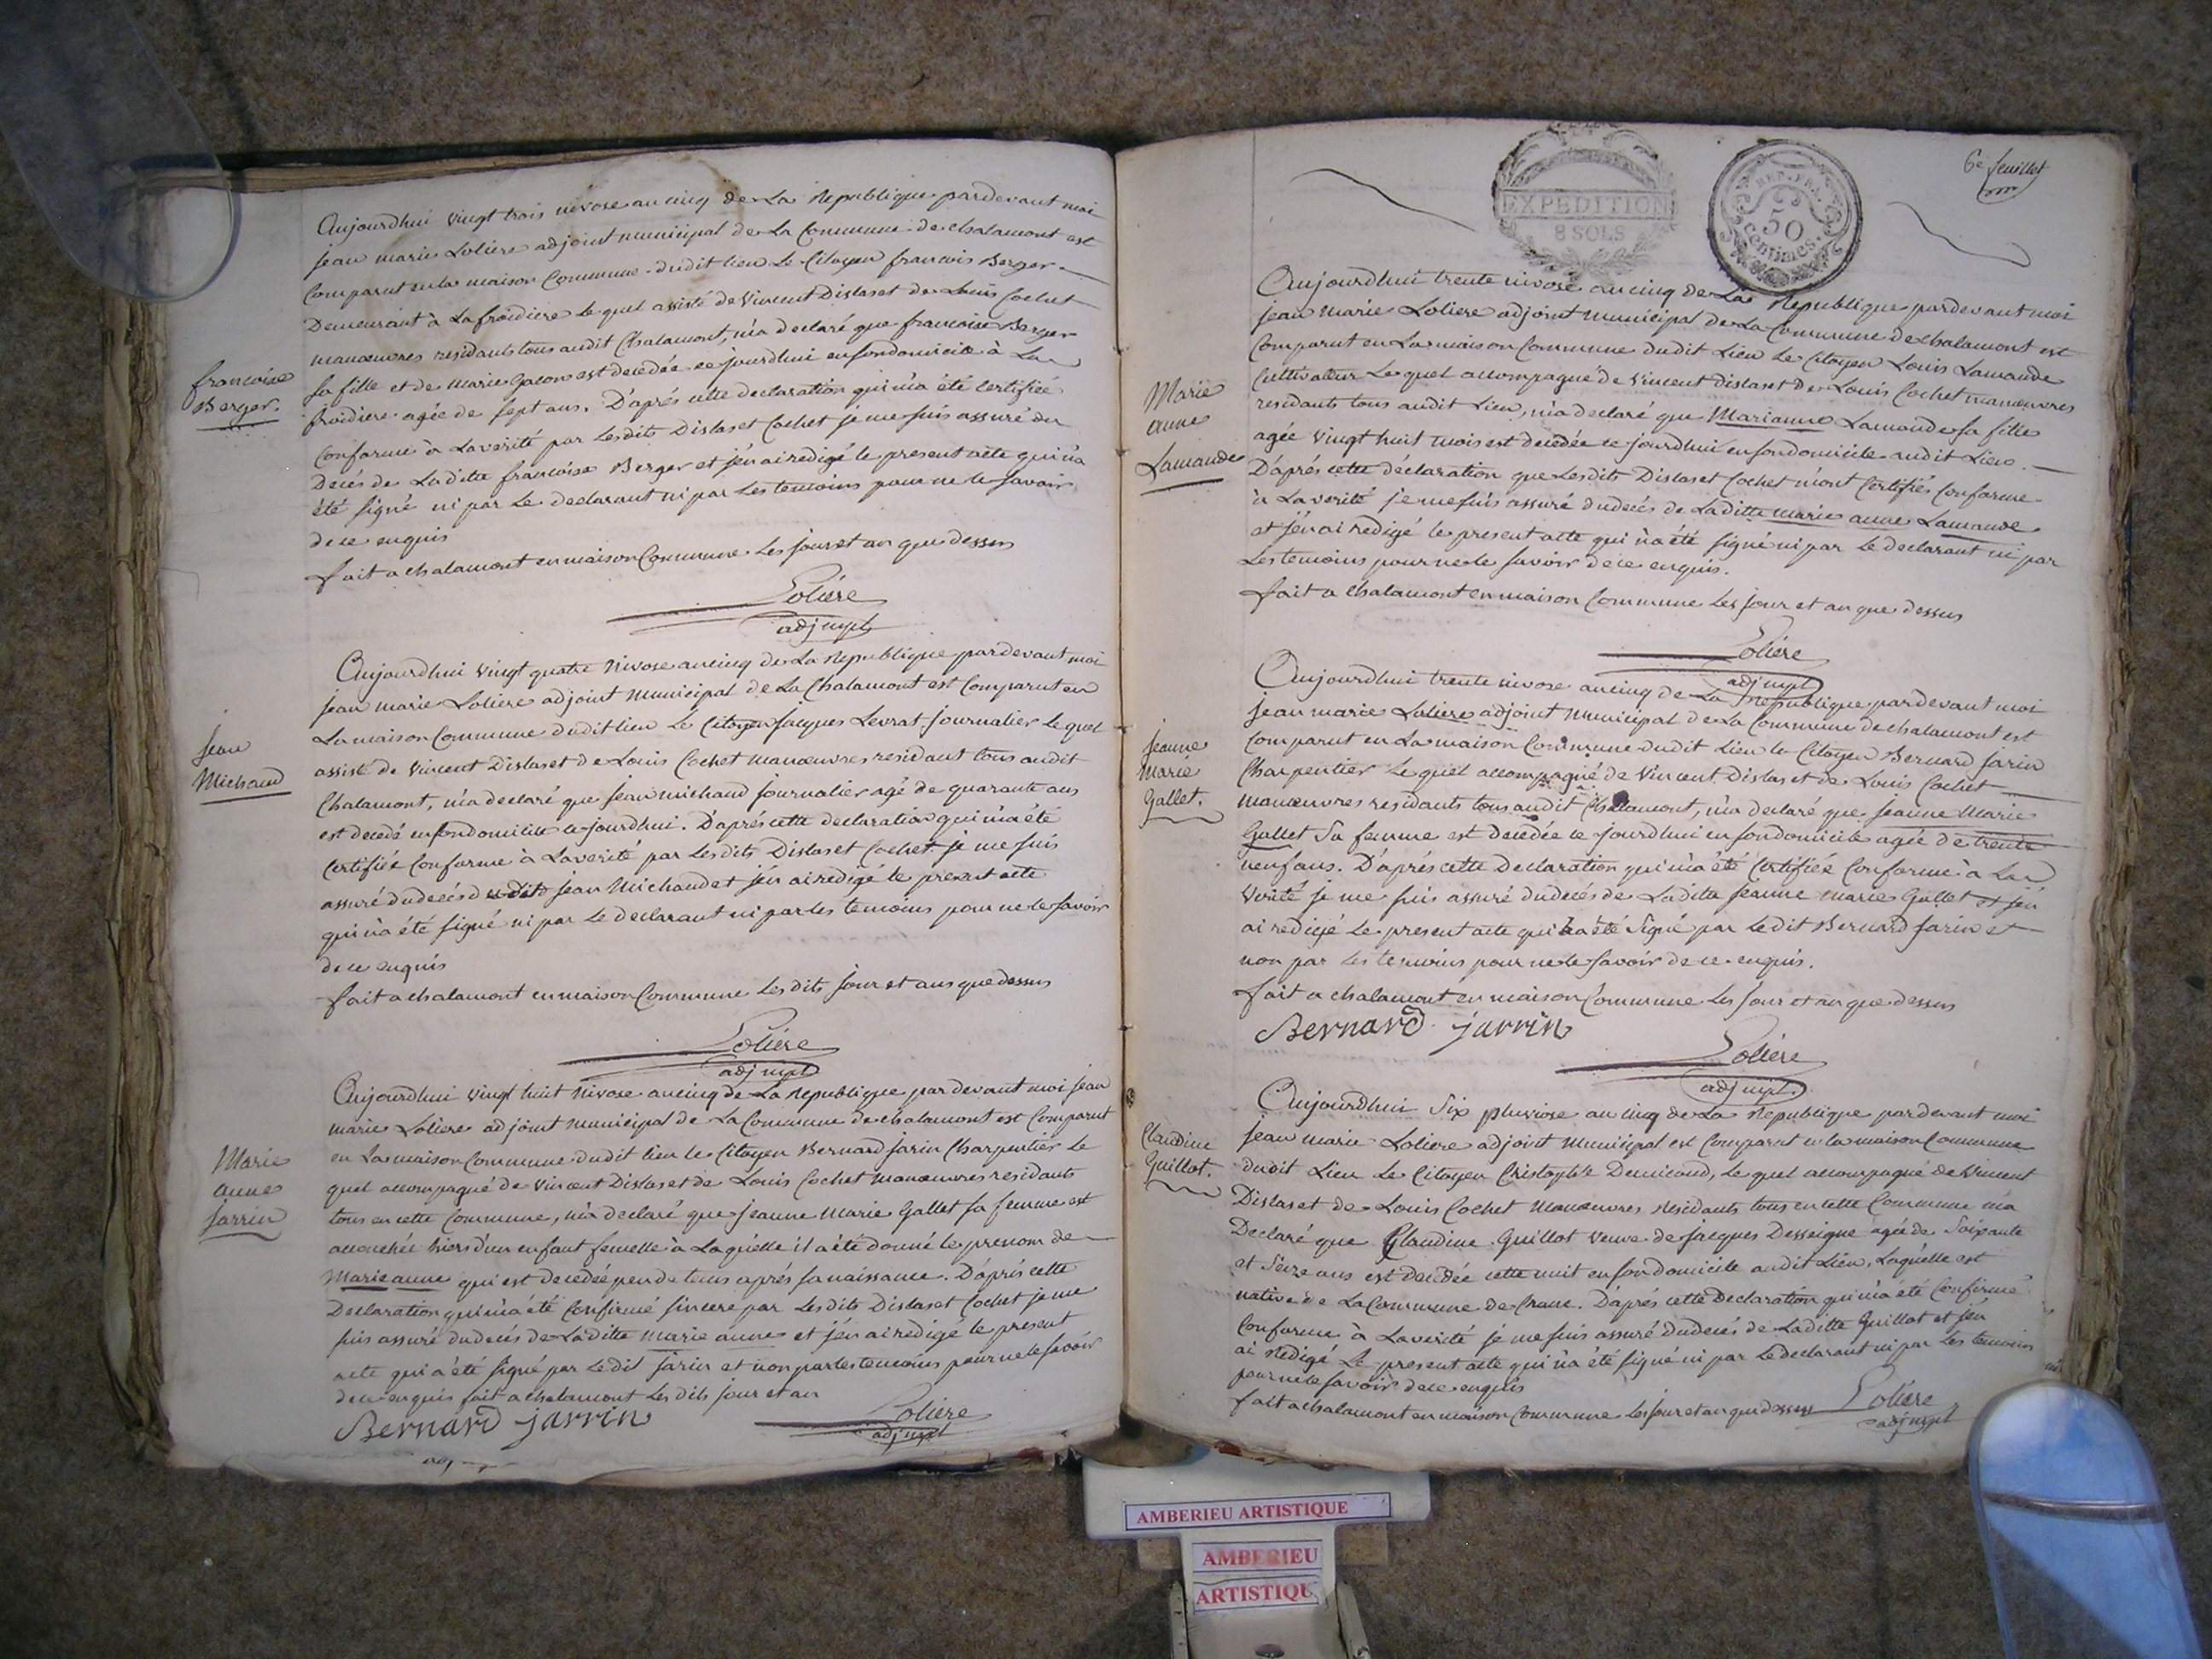 Aujourdhui vingt trois nivose an cinq de La Republique pardevant moi
jean marie Loliere adjoint municipal de La Commune de chalamont est
Comparut en la maison Commune dudit lieu Le Citoyen francois Berger
Demeurant à La froidiere le quel assisté de vincent Dislas et de Louis Cochet
manœuvres residants tous audit Chalamont, m'a declaré que francoise Berger
sa fille et de marie Gacon est decedée ce jourdhui en son domicile à La
froidiere agée de sept ans. D'aprés cette declaration qui m'a été Certifiée
Conforme à La verité par Lesdits Dislas et Cochet je me suis assuré du
Decés de Laditte francoise Berger et j'en ai redigé le present acte qui n'a
été signé ni par Le declarant ni par Les temoins pour ne le savoir
de ce enquis
fait a chalamont en maison Commune Les jour et an que dessus
Loliere
adj mpl
francoise
Berger.
Aujourdhui vingt quatre Nivose an cinq de La Republique pardevant moi
jean marie Loliere adjoint municipal de La Chalamont est Comparut en
La maison Commune dudit lieu Le Citoyen jacques Levrat journalier le quel
assisté de vincent Dislas et de Louis Cochet manœuvres residant tous audit
Chalamont, m'a declaré que jean michaud journalier agé de quarante ans
est decedé en son domicile ce jourdhui. D'aprés cette declaration qui m'a été
Certifiée Conforme à La verité par Lesdits Dislas et Cochet je me suis
assuré du decés dudit jean Michaud et j'en ai redigé le present acte
qui n'a été signé ni par Le declarant ni par les temoins pour ne le savoir
de ce enquis
fait a chalamont en maison Commune Les dits jour et ans que dessus
Loliere
adj mpl
jean
Michaud
Aujourdhui vingt huit Nivose an cinq de La Republique par devant moi jean
marie Loliere adjoint municipal de La Commune de chalamont est Comparut
en La maison Commune dudit lieu le Citoyen Bernard jarin Charpentier Le
quel accompagné de vincent Dislas et de Louis Cochet manœuvres residants
tous en cette Commune, m'a declaré que jeanne Marie Gallet sa femme est
accouchée hier d'un enfant femelle à Laquelle il a été donné le prenom de
Marie anne qui est decedée peu de tems aprés sa naissance. D'aprés cette
Declaration qui m'a été Confirmé sincere par Lesdits Dislas et Cochet je me
suis assuré du decés de Laditte marie anne et j'en ai redigé le present
acte qui a été signé par Le dit jarin et non par les temoins pour ne le savoir
de ce enquis fait a chalamont Les dits jour et an
Bernard jarrin
Loliere
adj mpl
Marie
anne
jarrin
6e feuillet
EXPEDITION
8 SOLS
REP. FRA.
50
centimes.
Aujourdhui trente nivose an cinq de La Republique pardevant moi
jean Marie Loliere adjoint municipal de La Commune de chalamont est
Comparut en La maison Commune dudit Lieu Le Citoyen Louis Lamande
Cultivateur Le quel accompagné de vincent Dislas et De Louis Cochet manœuvres
residants tous audit Lieu, m'a declaré que Marianne Lamande sa fille
agée vingt huit mois est decedée ce jourdhui en son domicile audit Lieu.
D'aprés cette déclaration que Lesdits Dislas et Cochet m'ont Certifiés Conforme
à La verité je me suis assuré du decés de Laditte marie anne Lamande
et j'en ai redigé le present acte qui n'a été signé ni par Le declarant ni par
Les temoins pour ne le savoir de ce enquis.
fait a chalamont en maison Commune Les jour et an que dessus
Loliere
adj mpl
Marie
anne
Lamande
Aujourdhui trente nivose an cinq de La Republique pardevant moi
jean marie Loliere adjoint Municipal de La Commune de chalamont est
Comparut en La maison Commune dudit Lieu le Citoyen Bernard jarin
Charpentier Le quel accompagné de vincent Dislas et de Louis Cochet
manœuvres residants tous audit Chalamont, m'a declaré que jeanne Marie
Gallet Sa femme est decedée ce jourdhui en son domicile agée de trente
neuf ans. D'aprés cette Declaration qui m'a été Certifiée Conforme à La
verité je me suis assuré du decés de Laditte jeanne marie Gallet et j'en
ai redigé Le present acte qui a été Signé par Le dit Bernard jarin et
non par Les temoins pour ne le savoir de ce enquis.
fait a chalamont en maison Commune Les jour et an que dessus
Bernard jarrin
Loliere
adj mpl.
jeanne
Marie
Gallet.
Aujourdhui Six pluviose an cinq de La Republique pardevant moi
jean marie Loliere adjoint Municipal est Comparut en la maison Commune
dudit Lieu Le Citoyen Cristophle Demicoud, Le quel accompagné de vincent
Dislas et de Louis Cochet Manœuvres Residants tous en cette Commune m'a
Declaré que Claudine Guillot veuve de jacques Desseigne agée de Soixante
et Seize ans est decedée cette nuit en son domicile audit Lieu, Laquelle est
native de La Commune de Crans. D'aprés cette Declaration qui m'a été Confirmé
Conforme à La verité je me suis assuré du decés de Laditte Guillot et j'en
ai Redigé Le present acte qui n'a été signé ni par Le declarant ni par Les temoins
pour ne le savoir de ce enquis
fait a chalamont en maison Commune Les jour et an que dessus
Loliere
adj mpl
Claudine
Guillot.
AMBERIEU ARTISTIQUE
AMBERIEU
ARTISTIQU